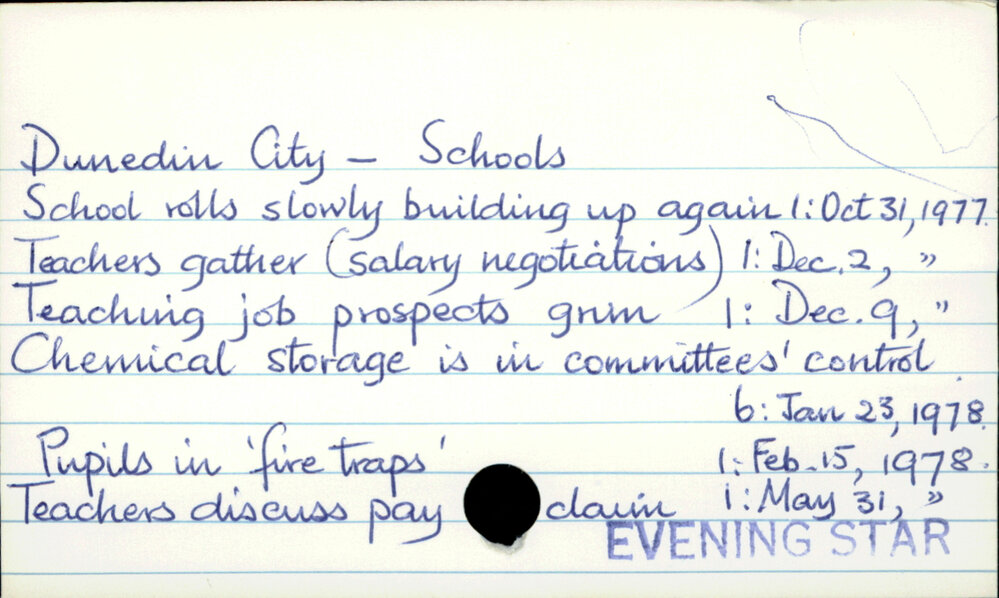 Dunedin City – Schools
School rolls slowly building up again 1: Oct 31, 1977.
Teachers gather (salary negotiations) 1: Dec. 2, "
Teaching job prospects grim 1: Dec. 9, "
Chemical storage is in committees' control.
6: Jan 23, 1978.
Pupils in 'fire traps' 1: Feb. 15, 1978.
Teachers discuss pay claim 1: May 31, "
EVENING STAR